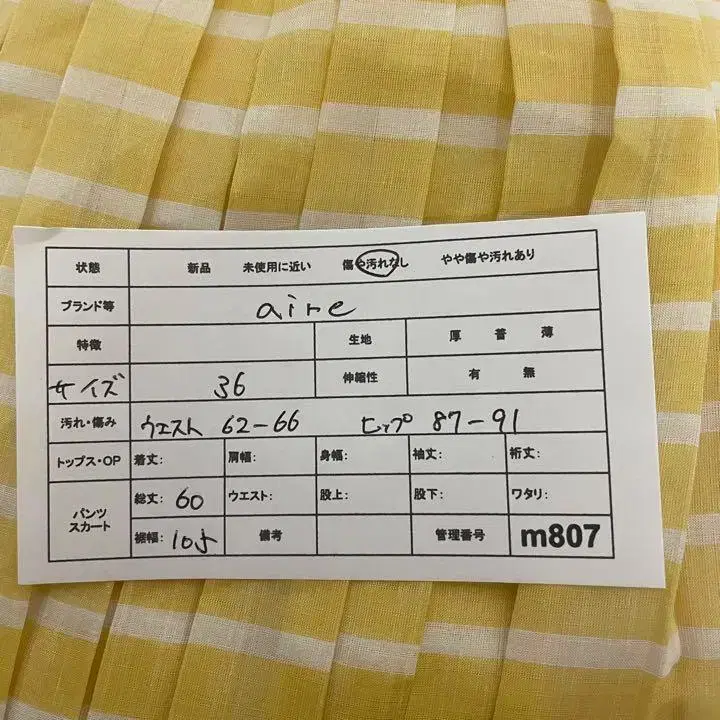 状態 新品 未使用に近い 傷や汚れなし やや傷や汚れあり
ブランド等 aire
特徴 生地 厚 普 薄
サイズ 36 伸縮性 有 無
汚れ・傷み ウエスト 62-66 ヒップ 87-91
トップス・OP 着丈: 肩幅: 身幅: 袖丈: 裄丈:
パンツ
スカート
総丈: 60 ウエスト: 股上: 股下: ワタリ:
裾幅: 105 備考 管理番号 m807